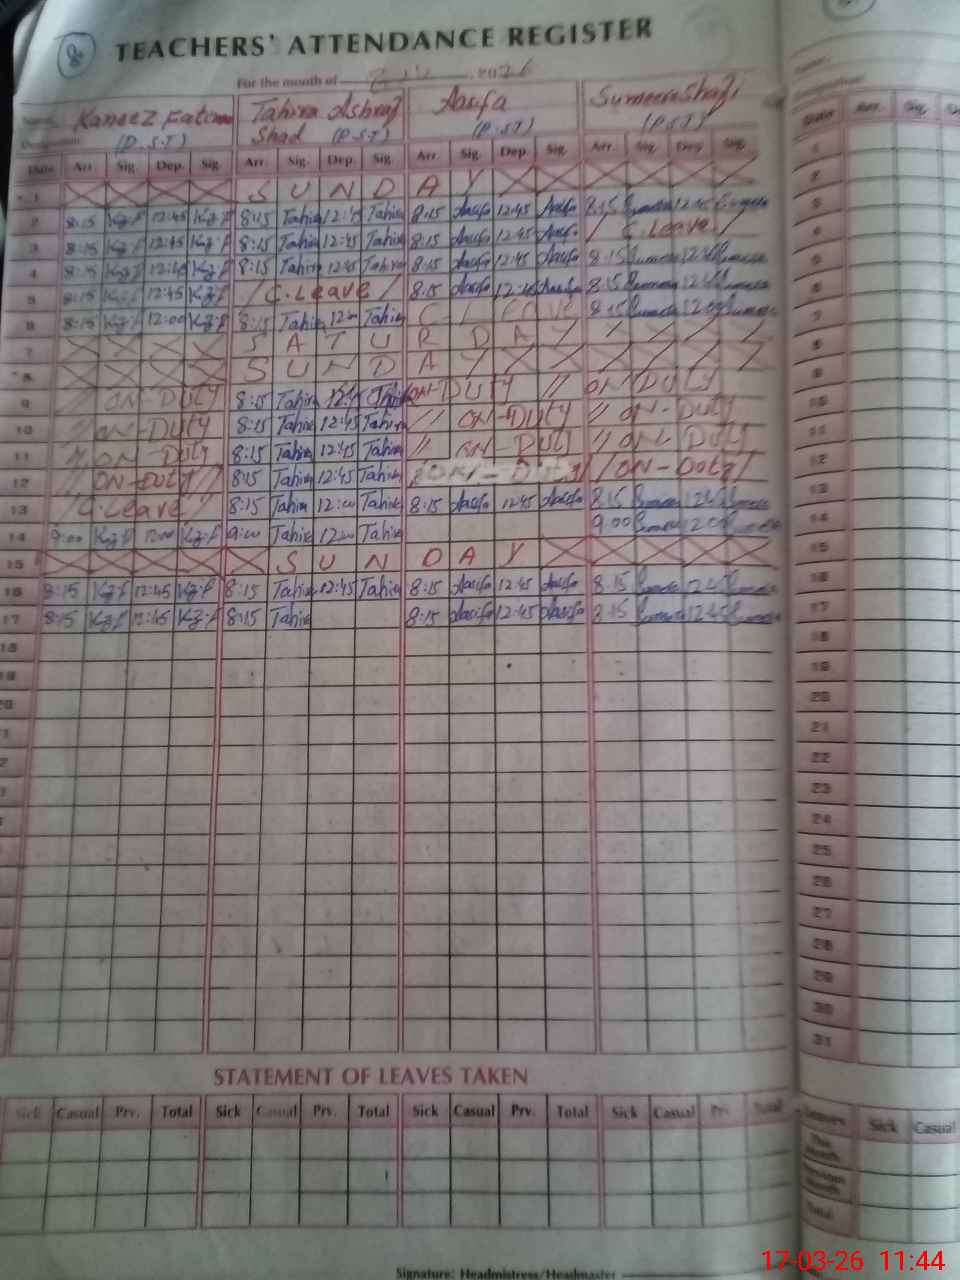 8
TEACHERS' ATTENDANCE REGISTER
For the month of 2026
Name Kaneez Fatima Tahira Ashraf Aasifa Sumeera Shafi
Designation (P.S.T) Shad (P.S.T) (P.S.T) (P.S.T)
Date Arr. Sig. Dep. Sig. Arr. Sig. Dep. Sig. Arr. Sig. Dep. Sig. Arr. Sig. Dep. Sig.
1 S U N D A Y
2 8:15 Kz.f 12:45 Kz.f 8:15 Tahira 12:45 Tahira 8:15 Aasifa 12:45 Aasifa 8:15 12:45
3 8:15 Kz.f 12:45 Kz.f 8:15 Tahira 12:45 Tahira 8:15 Aasifa 12:45 Aasifa / C.Leave /
4 8:15 Kz.f 12:45 Kz.f 8:15 Tahira 12:45 Tahira 8:15 Aasifa 12:45 Aasifa 8:15 12:45
5 8:15 Kz.f 12:45 Kz.f / C.Leave / 8:15 Aasifa 12:45 Aasifa 8:15 12:45
6 8:15 Kz.f 12:00 Kz.f 8:15 Tahira 12:00 Tahira C Leave 8:15 12:00
7 S A T U R D A Y
8 S U N D A Y
9 // ON-DUTY 8:15 Tahira 12:45 Tahira ON-DUTY // ON DUTY
10 // ON-DUTY 8:15 Tahira 12:45 Tahira // ON-DUTY // ON-DUTY
11 // ON-DUTY 8:15 Tahira 12:45 Tahira // ON DUTY // ON-DUTY
12 // ON-DUTY // 8:15 Tahira 12:45 Tahira ON-DUTY // ON-DUTY /
13 // C.Leave // 8:15 Tahira 12:00 Tahira 8:15 Aasifa 12:45 Aasifa 8:15
14 9:00 Kz.f 12:00 Kz.f 9:00 Tahira 12:00 Tahira 9:00 12:00
15 S U N D A Y
16 8:15 Kz.f 12:45 Kz.f 8:15 Tahira 12:45 Tahira 8:15 Aasifa 12:45 Aasifa 8:15 12:45
17 8:15 Kz.f 12:45 Kz.f 8:15 Tahira 8:15 Aasifa 12:45 Aasifa 8:15 12:45
18
19
20
21
22
23
24
25
26
27
28
29
30
31
STATEMENT OF LEAVES TAKEN
Sick Casual Prv. Total Sick Casual Prv. Total Sick Casual Prv. Total Sick Casual Prv. Total
Leaves Sick Casual
This Month
Previous Month
Total
Signature: Headmistress/Headmaster
17-03-26 11:44